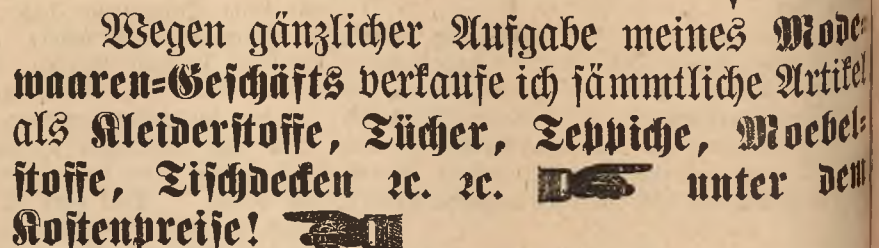 Wegen gänzlicher Aufgabe meines Mode-
waaren-Geschäfts verkaufe ich sämmtliche Artikel
als Kleiderstoffe, Tücher, Teppiche, Moebel-
stoffe, Tischdecken ꝛc. ꝛc. unter dem
Kostenpreise!